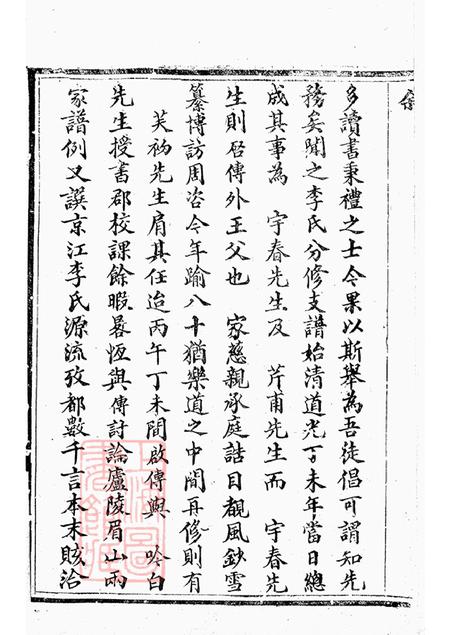 多讀書秉禮之士令果以斯舉為吾徒倡可謂知先
務矣聞之李氏分修支譜始清道光丁未年當日總
成其事為 宇春先生及 芹甫先生而 宇春先
生則啓傳外王父也 家慈親承庭誥目覩風鈔雪
纂博訪周咨今年踰八十猶樂道之中間再修則有
芙衲先生肩其任迨丙午丁未間啟傳與 吟白
先生授書郡校課餘暇晷恆與傳討論廬陵眉山兩
家譜例又譔京江李氏源流攷都數千言本末賅洽